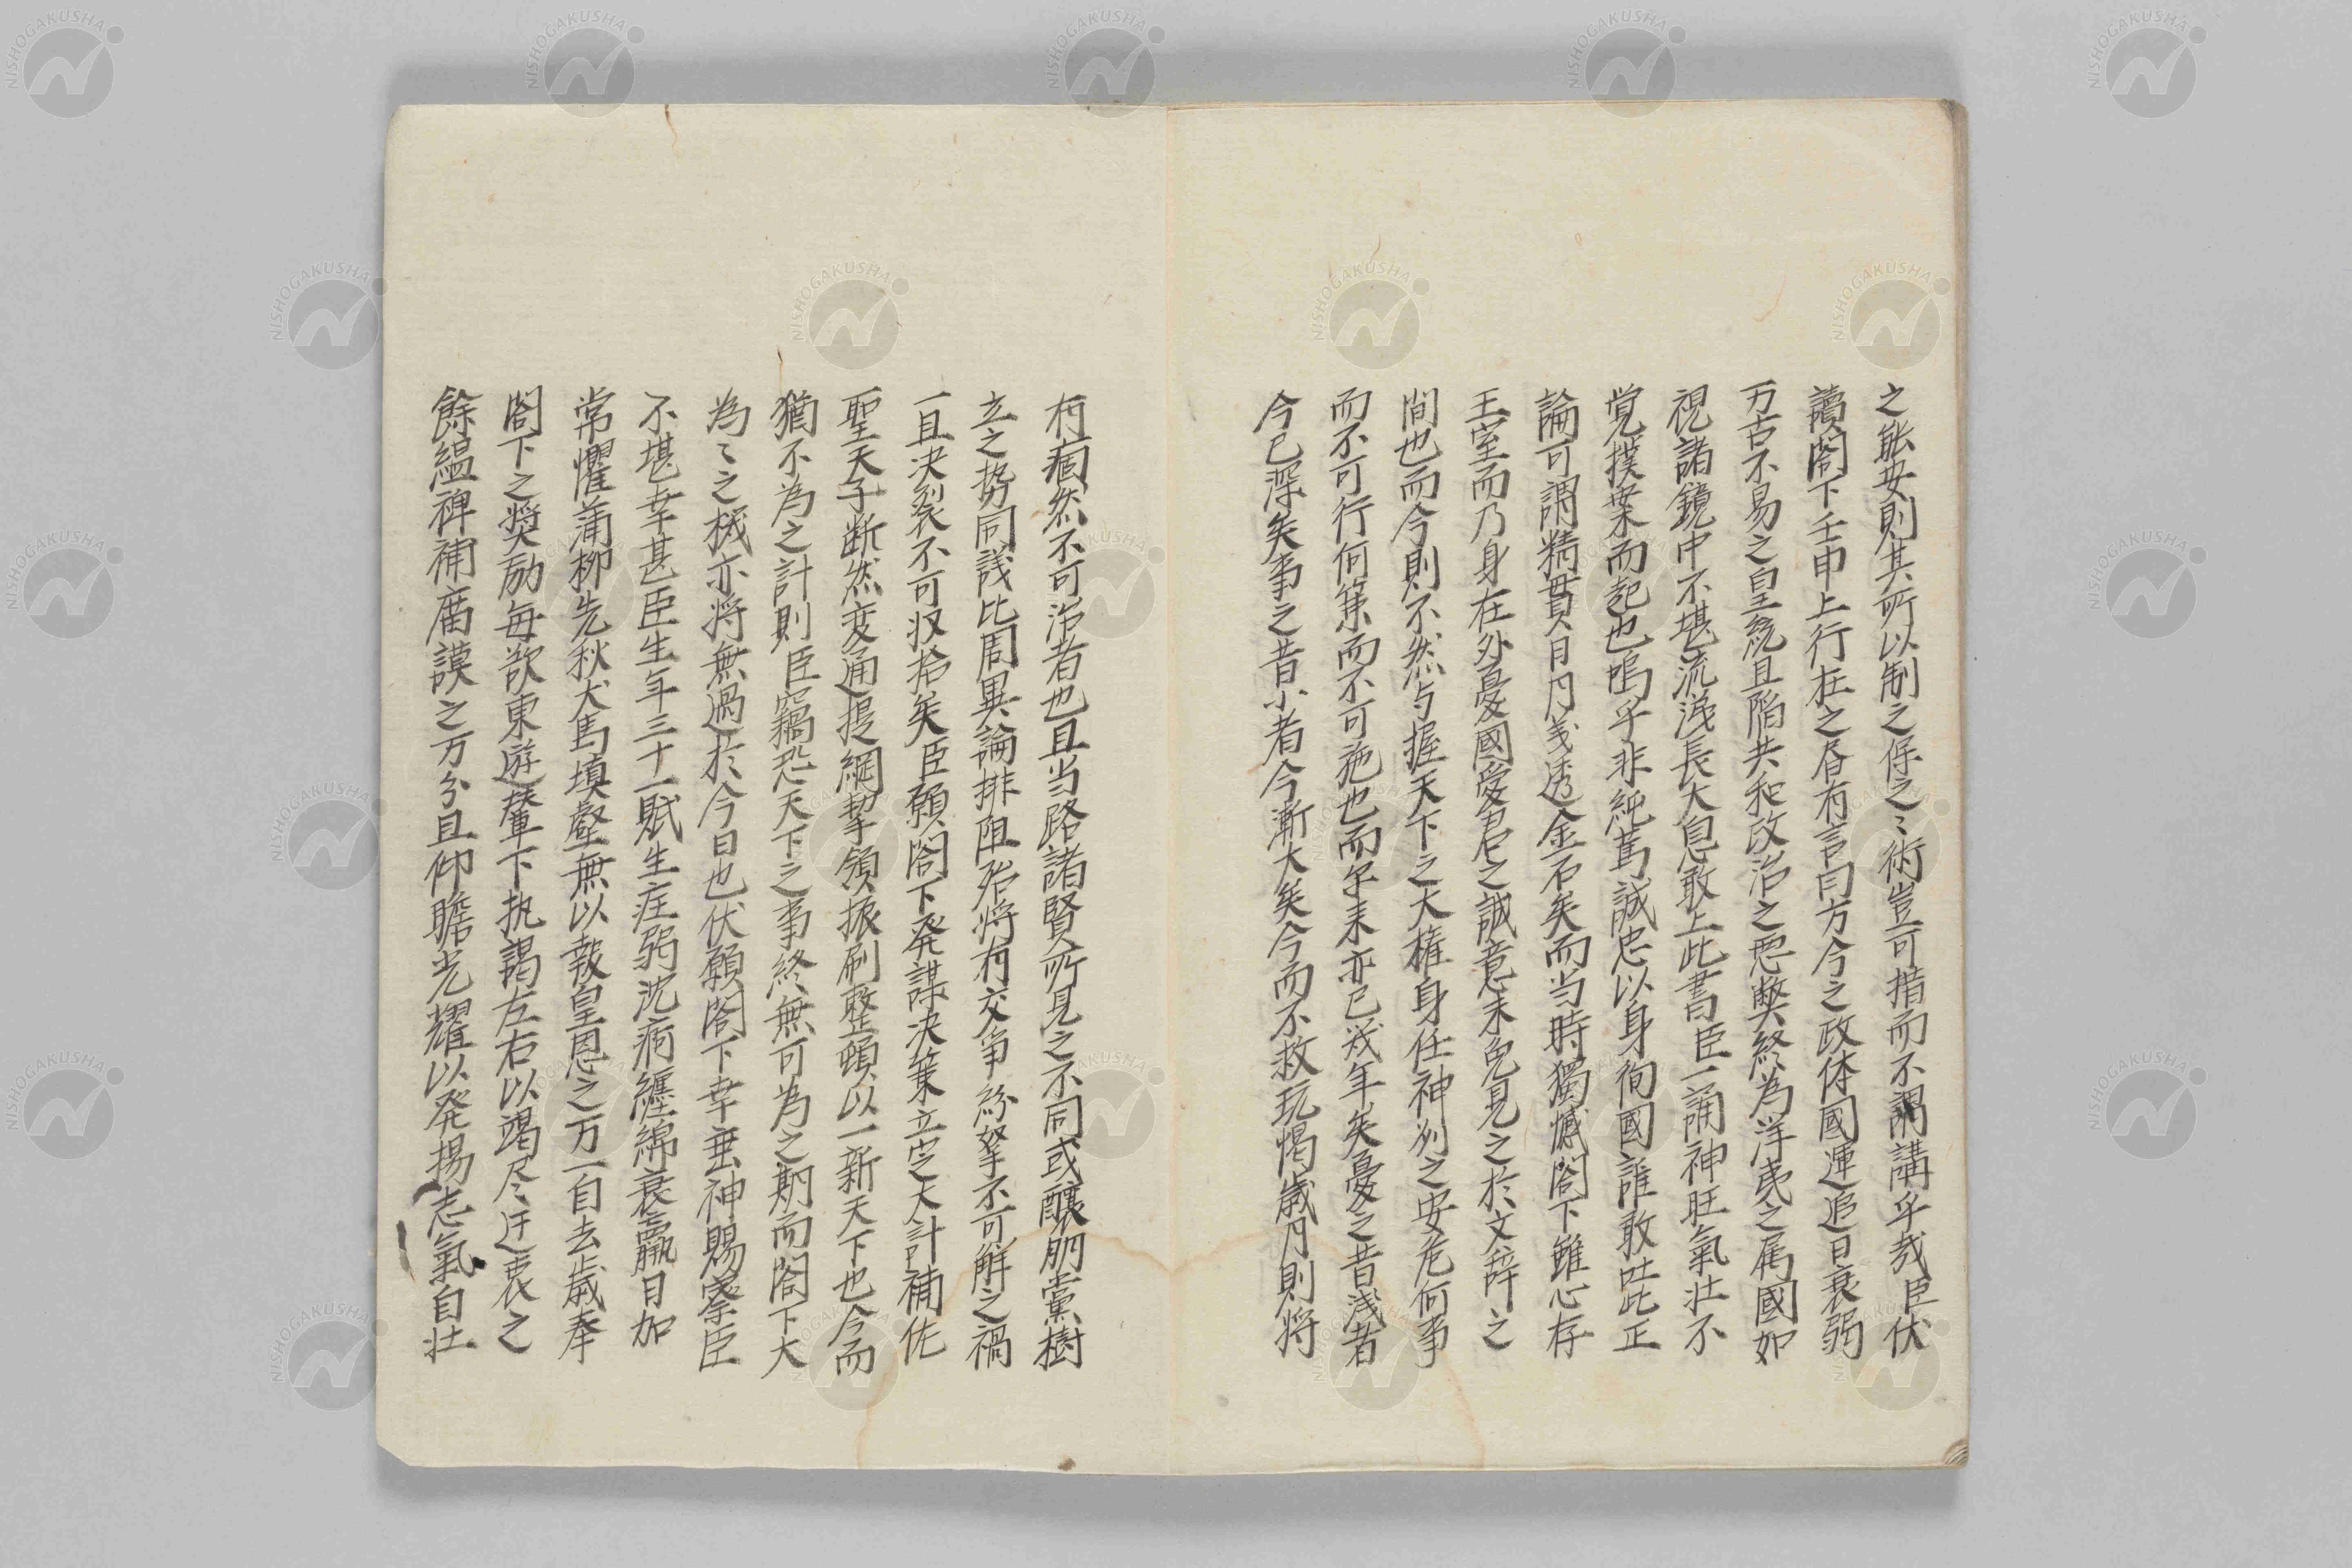 之能安則其所以制之俘之々術豈可措而不謂講乎哉臣伏
讀閣下壬申上行在之咨有言曰方今之政体國運追日衰弱
万古不易之皇統且陥共和政治之悪弊終為洋夷之属國如
視諸鏡中不堪流涕長大息敢上此書臣一誦神旺氣壮不
覚撲案而起也嗚乎非純篤誠忠以身徇國誰敢吐此正
論可謂精貫日月義透金石矣而当時獨憾閣下雖心存
王室而乃身在外憂國愛君之誠意未免見之於文辞之
間也而今則不然与握天下之大権身任神州之安危何事
而不可行何策而不可施也而尓来亦已幾年矣憂之昔浅者
今已深矣事之昔小者今漸大矣今而不救玩愒歳月則将
有痼然不可治者也且当路諸賢所見之不同或醸朋黨樹
立之勢同議比周異論排阻殆将有交争紛拏不可解之禍
一旦决裂不可収拾矣臣願閣下発謀决策立定大計補佐
聖天子断然変通提綱挈領振刷整頓以一新天下也今而
猶不為之計則臣竊恐天下之事終無可為之期而閣下大
為々之機亦将無過於今日也伏願閣下幸垂神賜察臣
不堪幸甚臣生年三十一賦生尫弱沈痾纏綿衰羸日加
常懼蒲柳先秋犬馬填壑無以報皇恩之万一自去歳奉
閣下之奨励毎欲東遊輦下執謁左右以竭尽迂衷之
餘縕裨補庿謨之万分且仰瞻光耀以発揚志氣自壮